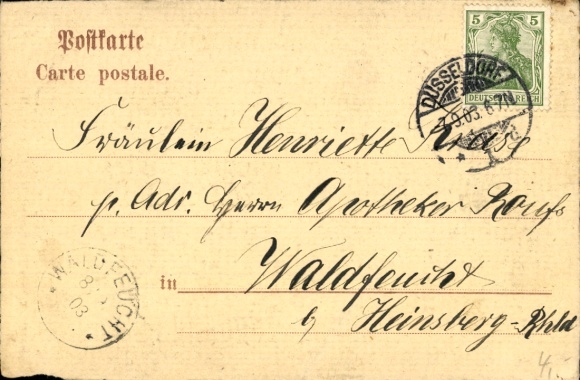 Postkarte
Carte postale.
5 5
DEUTSCHES REICH
DÜSSELDORF
7.9.03. 6-7N.
1
Fräulein Henriette
p. Adr. Herrn Apotheker
in Waldfeucht
b/ Heinsberg-Rhld
WALDFEUCHT
8
03
4,-